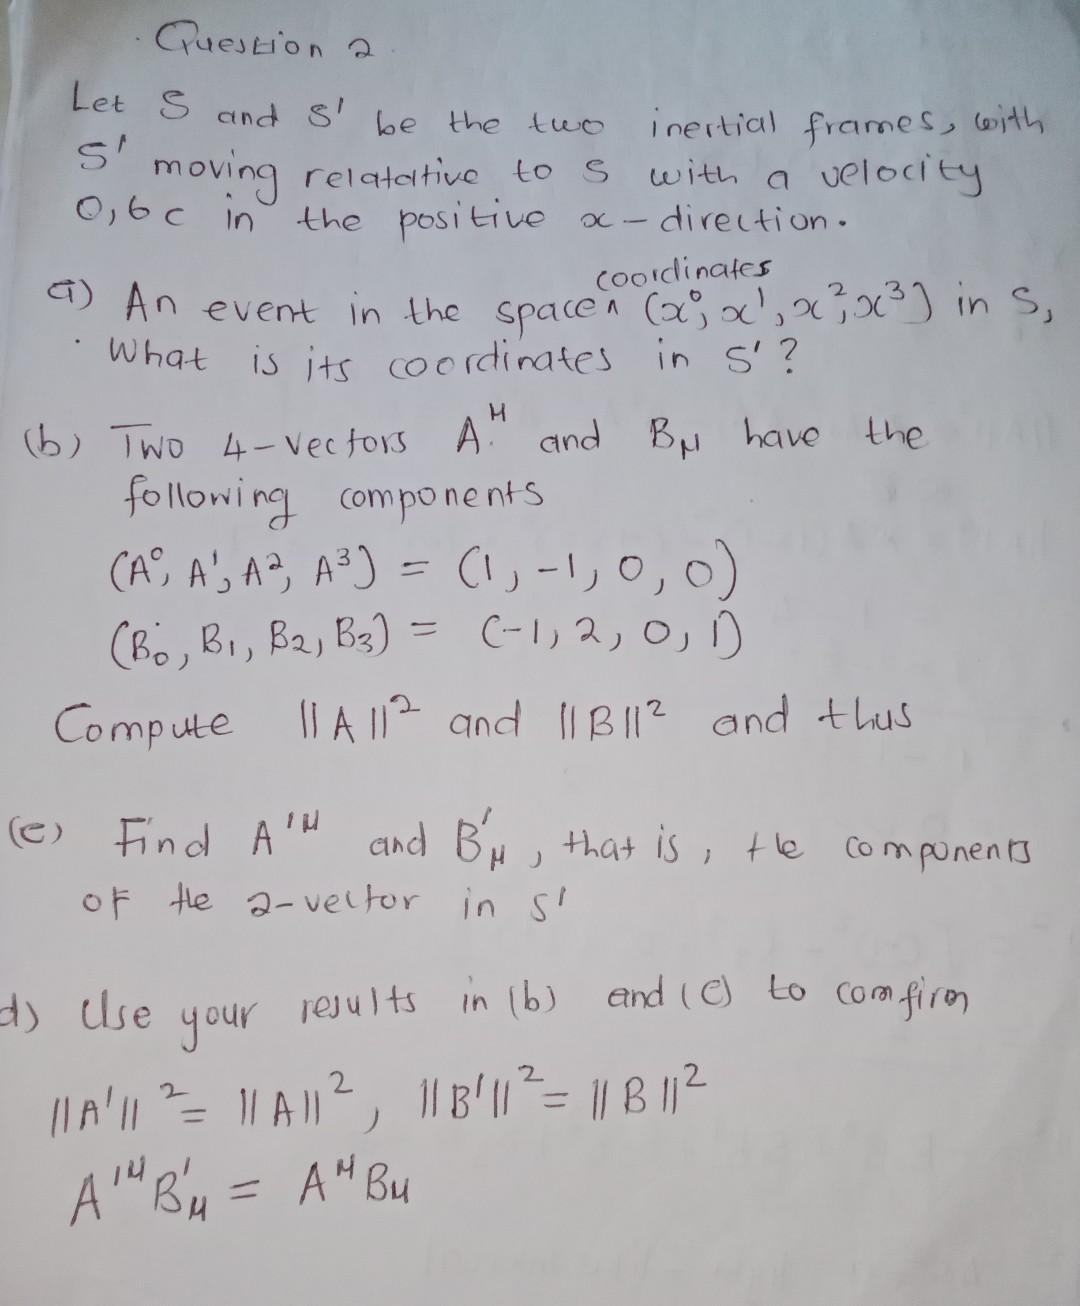 Question 2
Let S and S' be the two inertial frames, with
S' moving relatative to S with a velocity
0,6c in the positive x-direction.
coordinates
a) An event in the space ʌ (x⁰, x¹, x², x³) in S,
What is its coordinates in S'?
(b) Two 4-vectors A^μ and B_μ have the
following components
(A⁰, A¹, A², A³) = (1, -1, 0, 0)
(B₀, B₁, B₂, B₃) = (-1, 2, 0, 1)
Compute ||A||² and ||B||² and thus
(c) Find A'^μ and B'_μ, that is, the components
of the 2-vector in S'
d) Use your results in (b) and (c) to comfirm
||A'||² = ||A||², ||B'||² = ||B||²
A'^μ B'_μ = A^μ B_μ